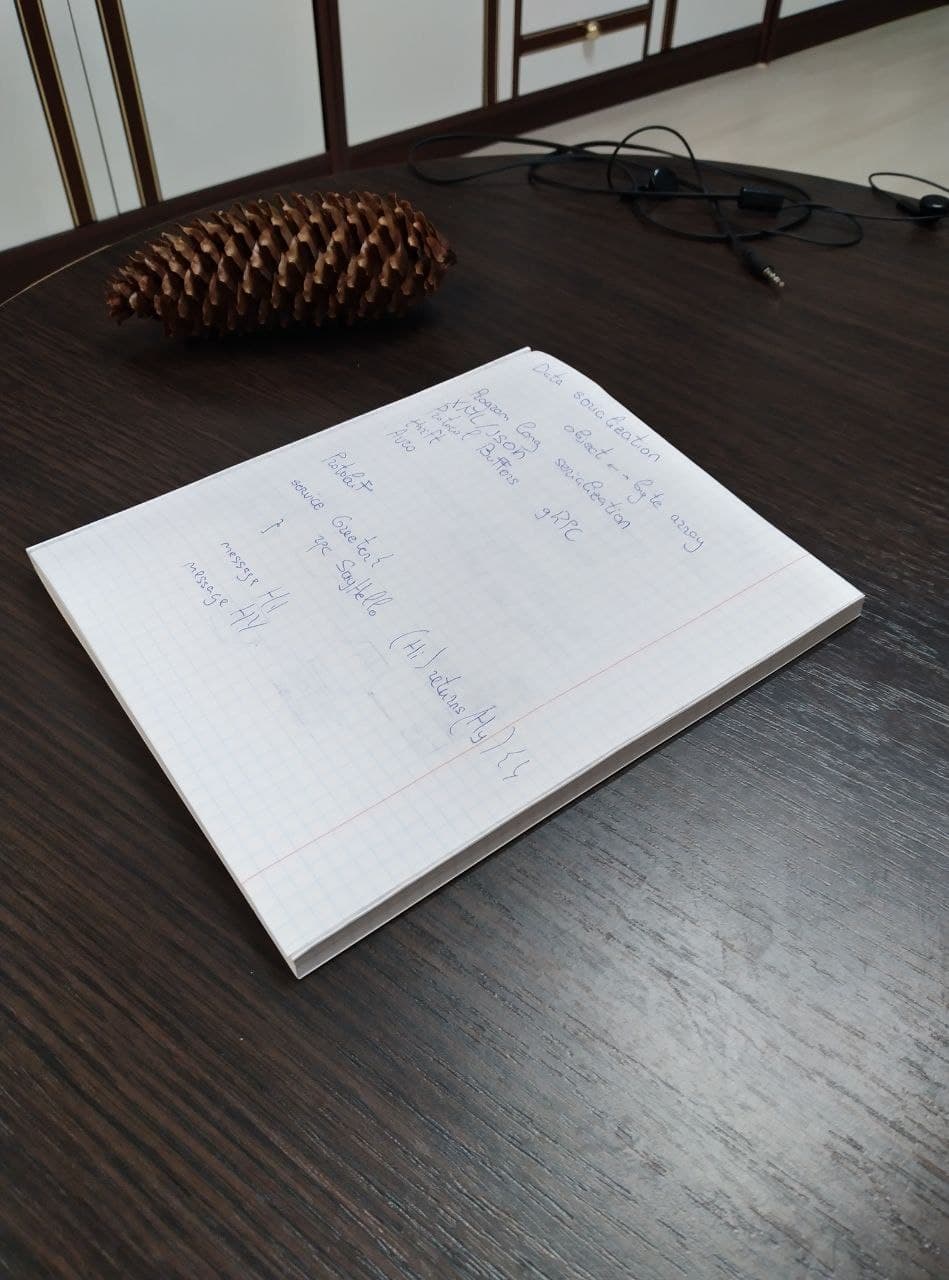 Data serialization
object <-> byte array
Program lang serialization
XML/JSON
Protocol Buffers gRPC
thrift
Avro
Protobuf
service Greeter {
rpc SayHello (Hi) returns (Hy) {}
}
message Hi
message HY